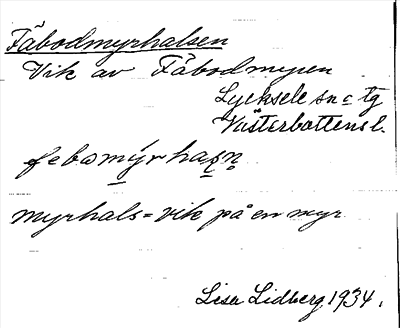 Fäbodmyrhalsen
Vik av Fäbodmyren
Lycksele sn o tg
Västerbottens l.
febomyrhasn
myrhals = vik på en myr
Lisa Lidberg 1934.